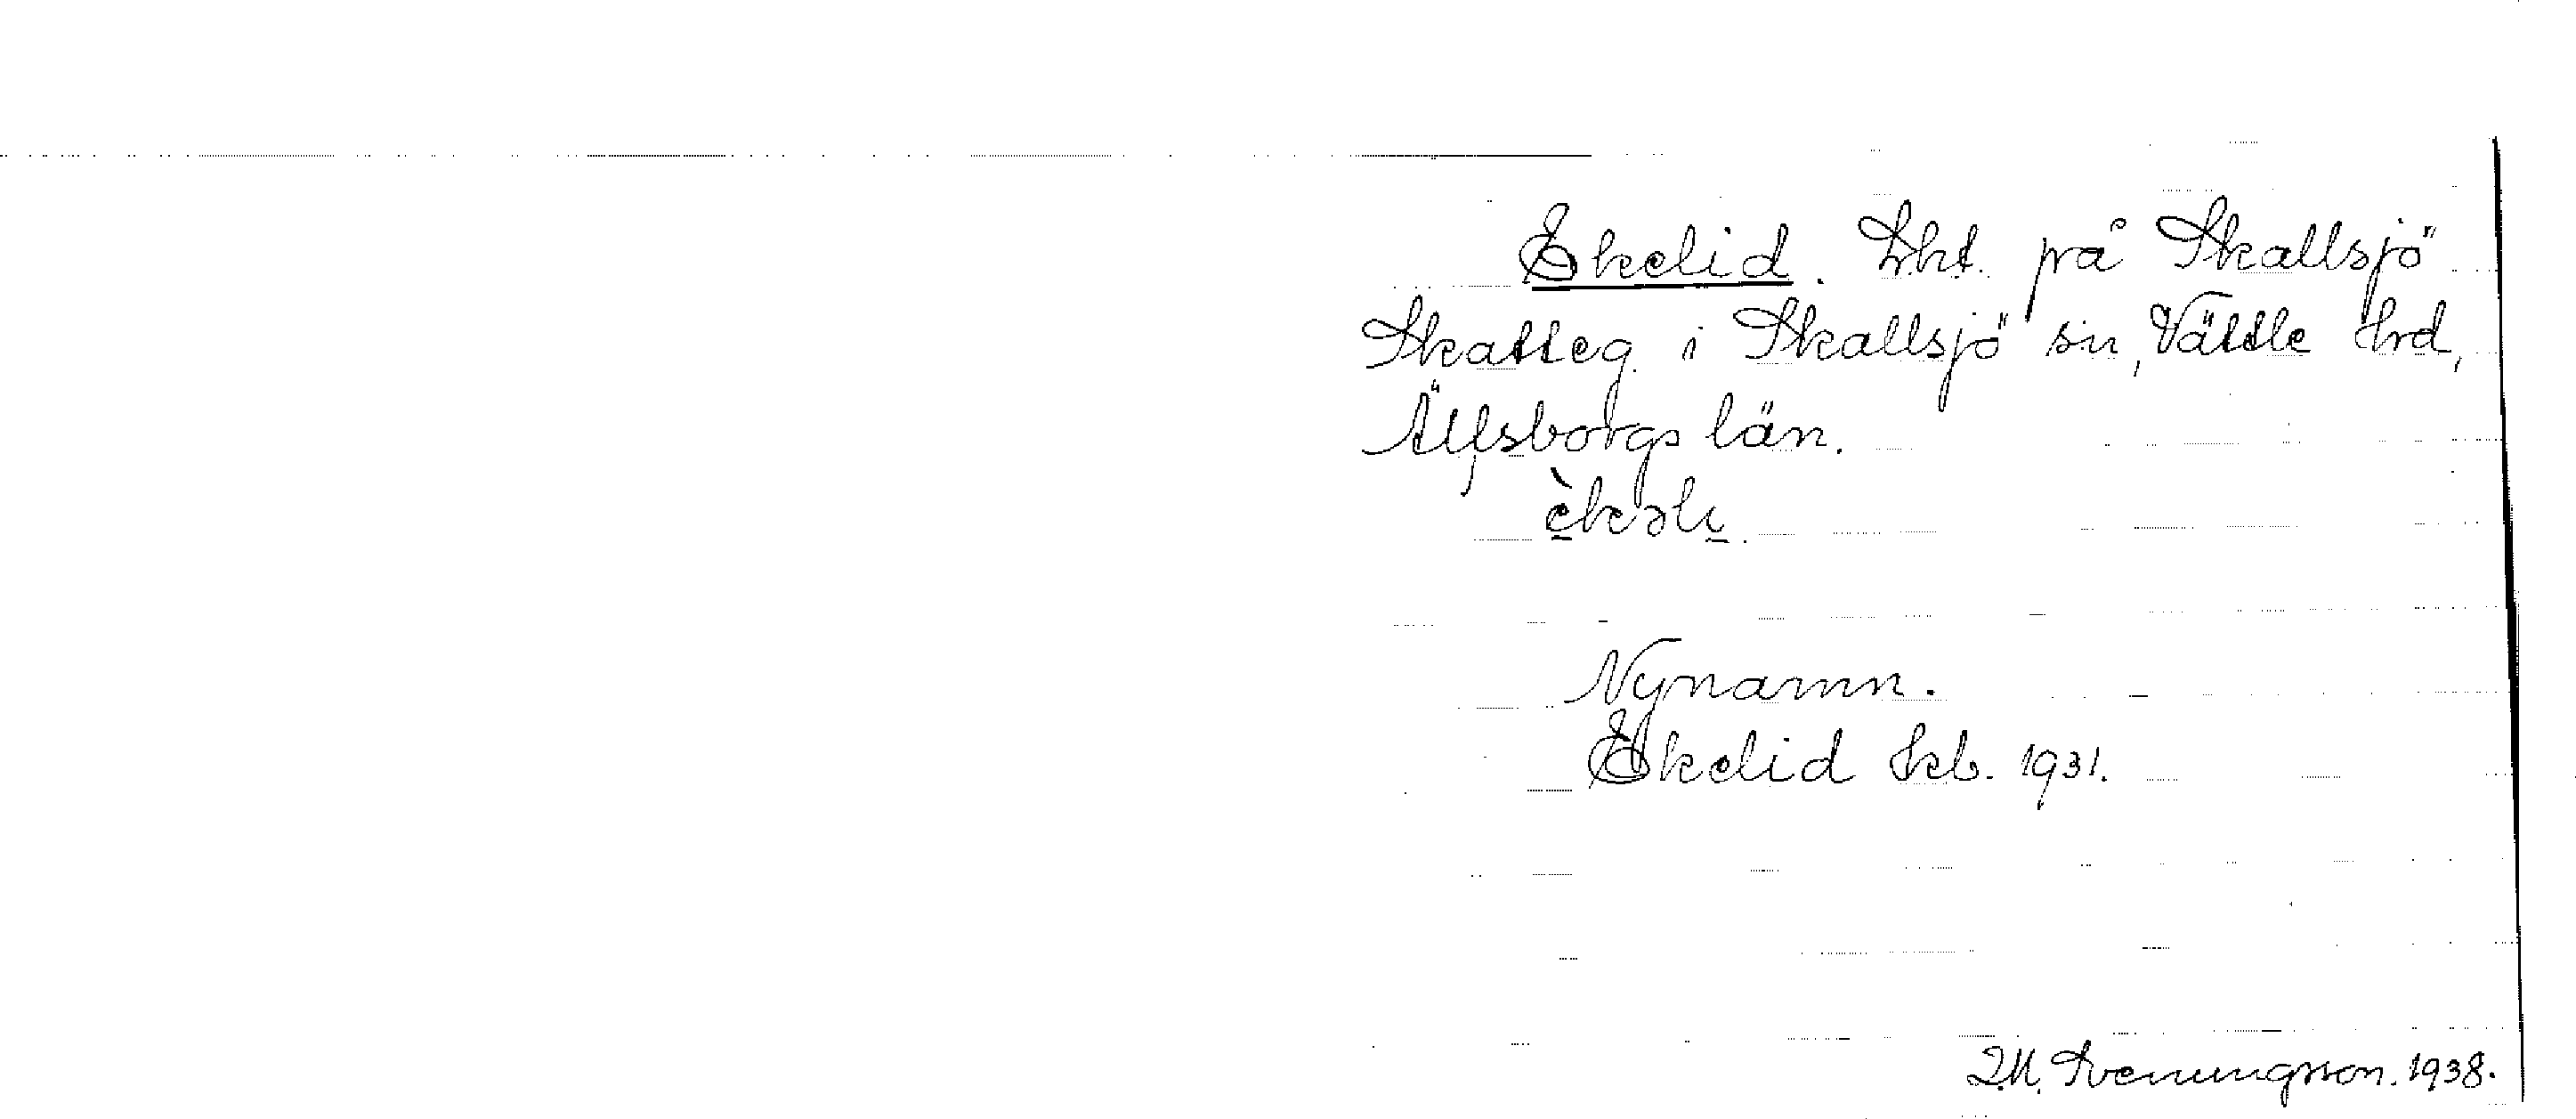 Ekelid. Lht. på Skallsjö
Skatteg. i Skallsjö sn, Vättle hrd,
Älfsborgs län.
èkəli.
Nynamn.
Ekelid Skb. 1931.
Svenungsson. 1938.